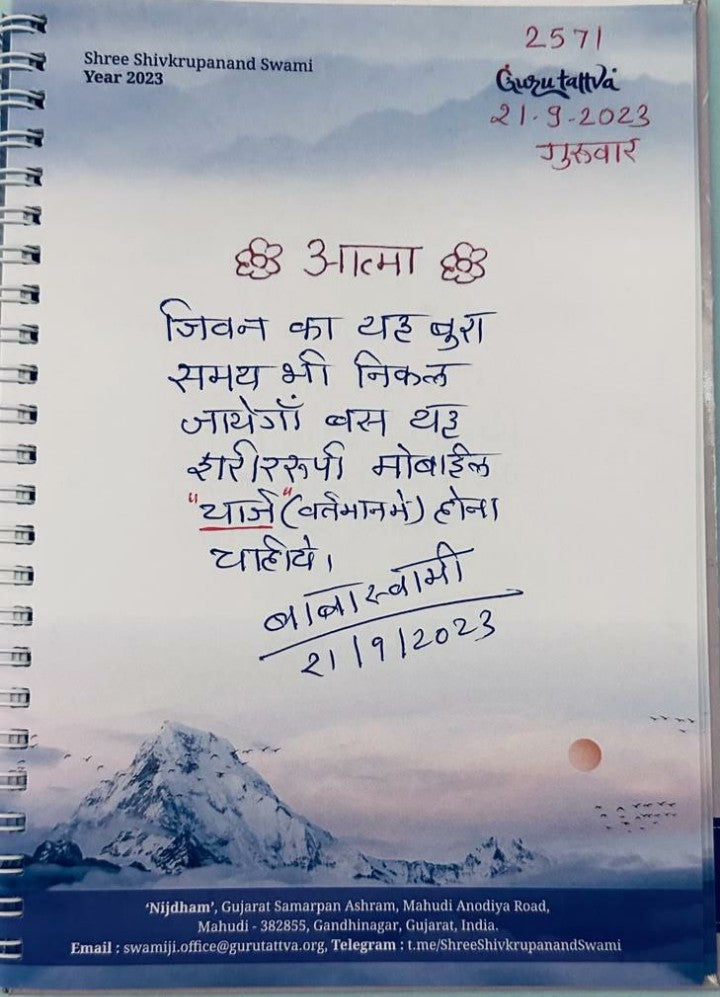 Shree Shivkrupanand Swami
Year 2023
2571
Gurutattva
21-9-2023
गुरुवार
आत्मा
जिवन का यह बुरा
समय भी निकल
जायेगाँ बस यह
शरीररूपी मोबाईल
"चार्ज" (वर्तमानमें) होना
चाहीये।
बाबास्वामी
21/9/2023
'Nijdham', Gujarat Samarpan Ashram, Mahudi Anodiya Road,
Mahudi - 382855, Gandhinagar, Gujarat, India.
Email : swamiji.office@gurutattva.org, Telegram : t.me/ShreeShivkrupanandSwami